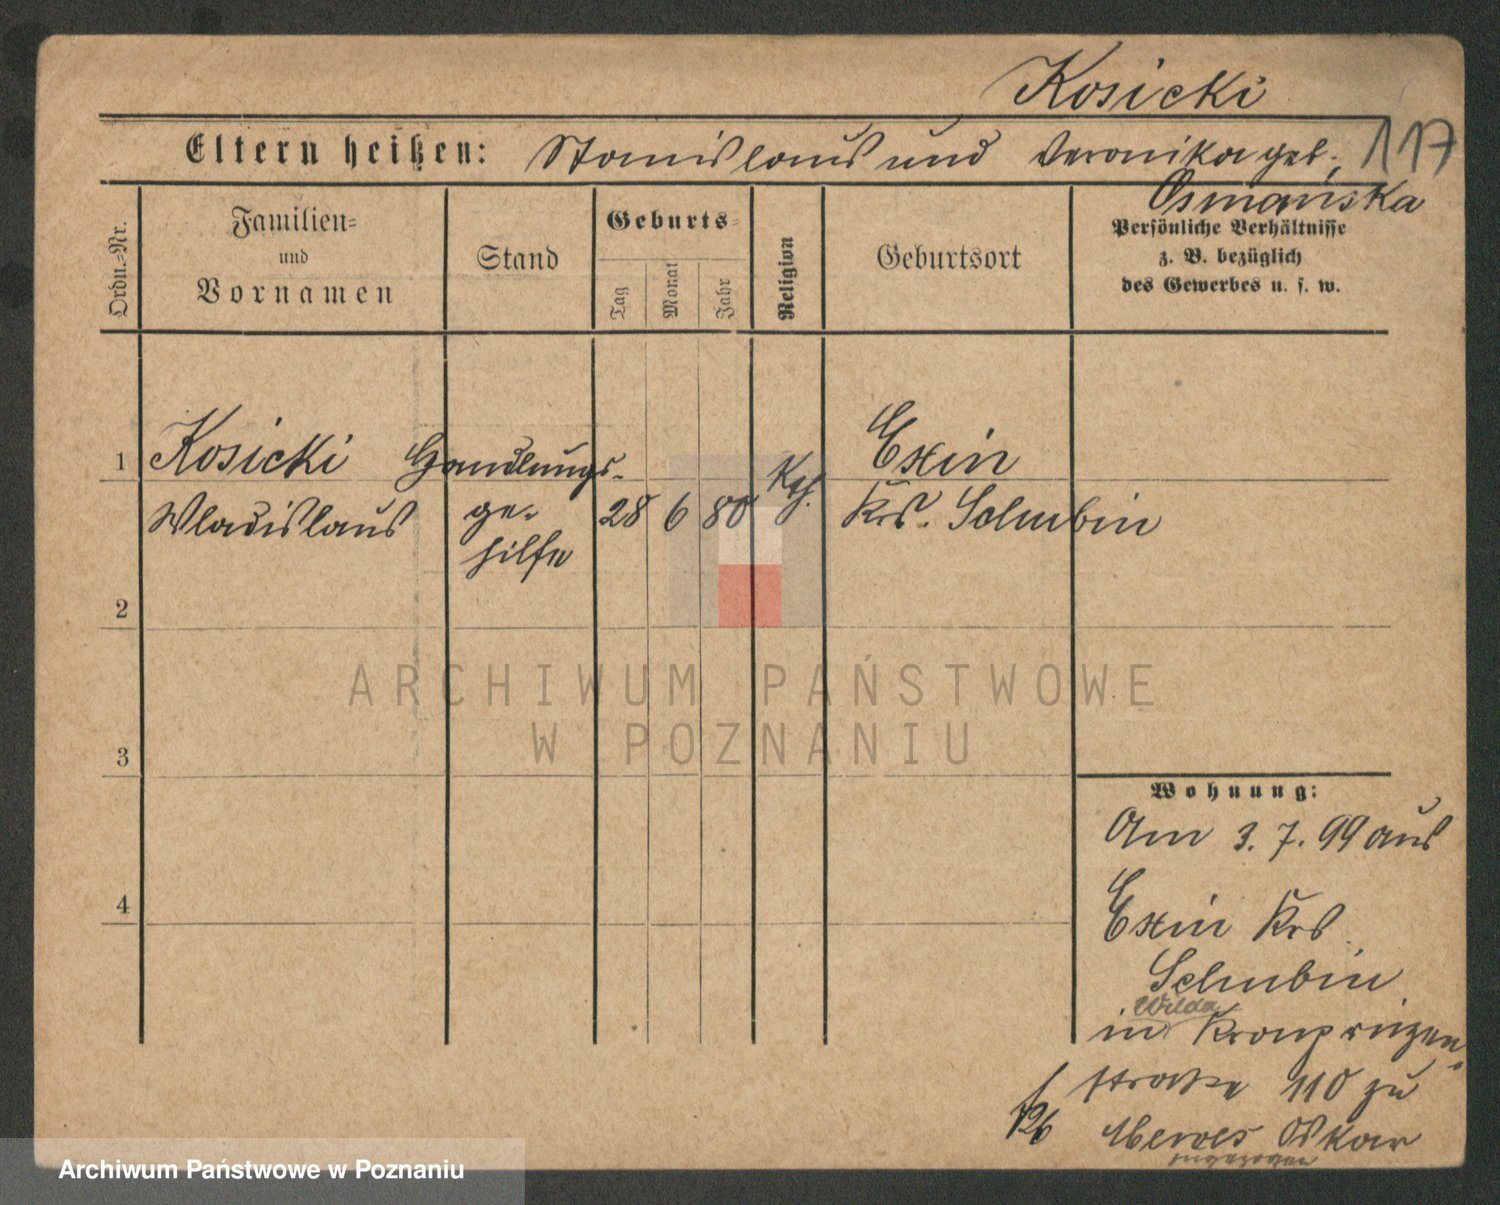 Kosicki
117
Eltern heißen: Stanislaus und Veronika geb.
Osmańska
Ordn.=Nr.
Familien=
und
Vornamen
Stand
Geburts=
Tag
Monat
Jahr
Religion
Geburtsort
Persönliche Verhältnisse
z. B. bezüglich
des Gewerbes u. s. w.
1 Kosicki Handlungs- Kth. Exin
Wladislaus ge- 28 6 80 Krs. Schubin
hilfe
2
3
4
ARCHIWUM PAŃSTWOWE
W POZNANIU
Wohnung:
Am 3. 7. 99 aus
Exin Krs
Schubin
Wilda
in Kronprinzen-
straße 110 zu
Oskar
zugezogen
Archiwum Państwowe w Poznaniu